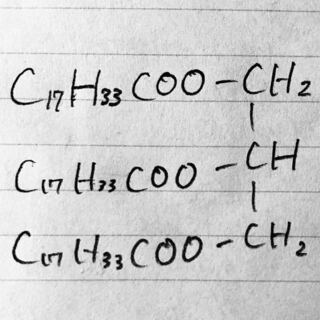 C₁₇H₃₃COO-CH₂
|
C₁₇H₃₃COO-CH
|
C₁₇H₃₃COO-CH₂